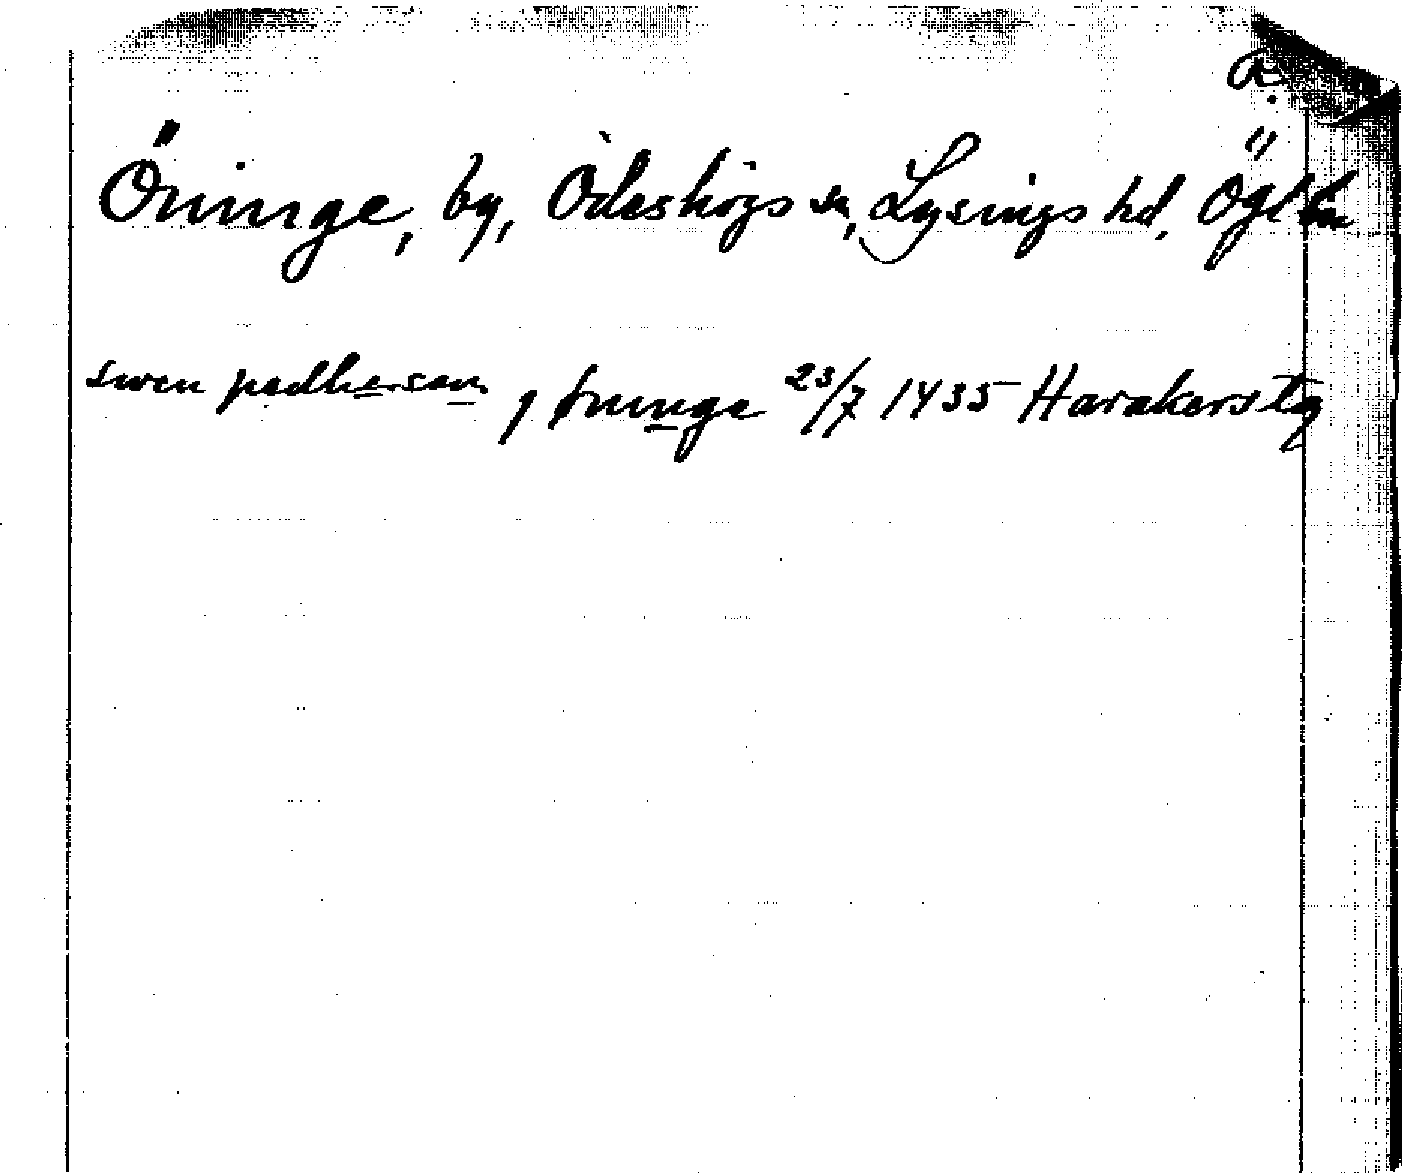 Öninge, by, Ödeshögs sn, Lysings hd, Ögl
swen pædherson j 23/7 1435 Harakers tg